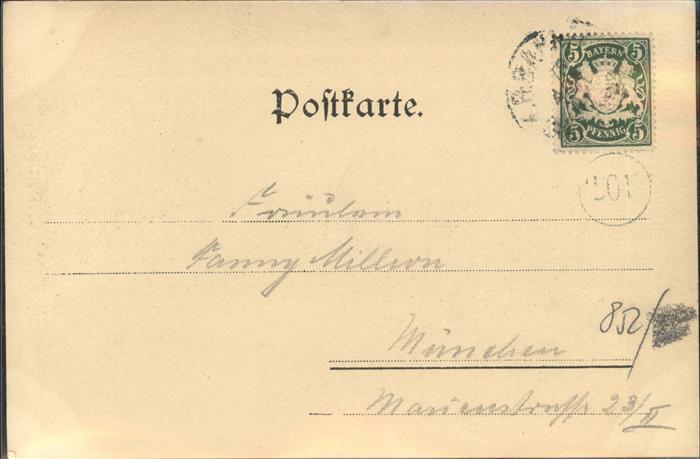 5 BAYERN 5
5 PFENNIG 5
Poſtkarte.
Fräulein
Fanny Million
852/
München
Marienstrasse 23/II